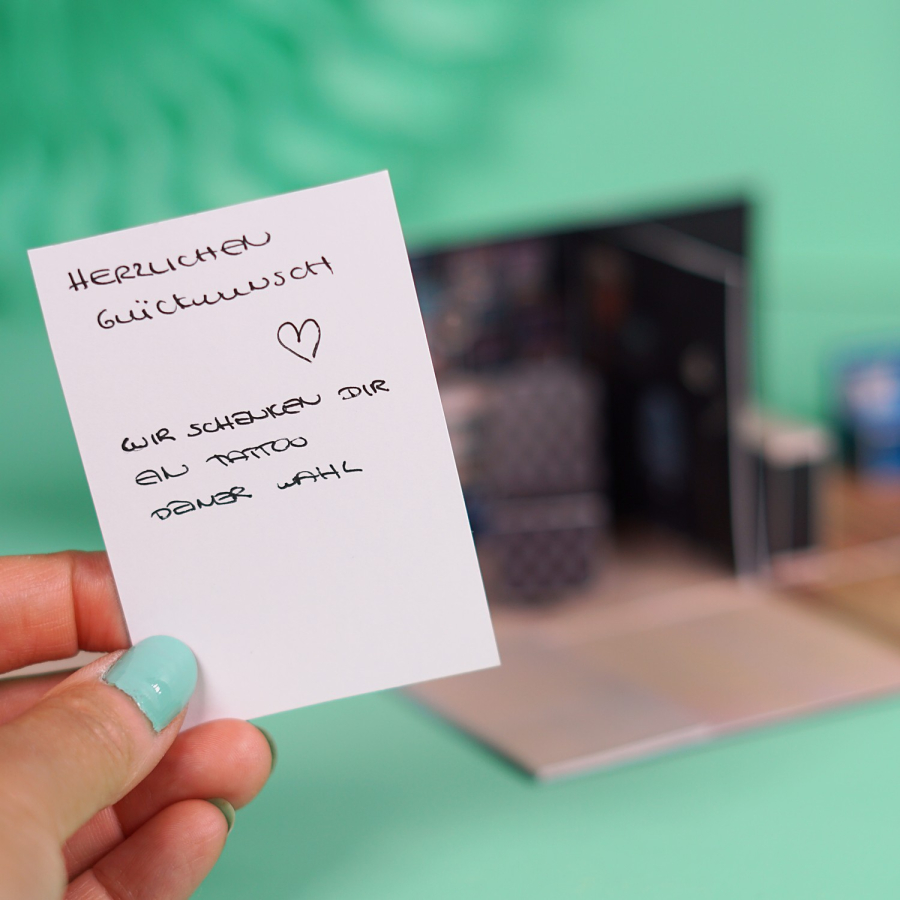 HERZLICHEN
Glückwunsch
♡
WIR SCHENKEN DIR
EIN TATTOO
DEINER WAHL